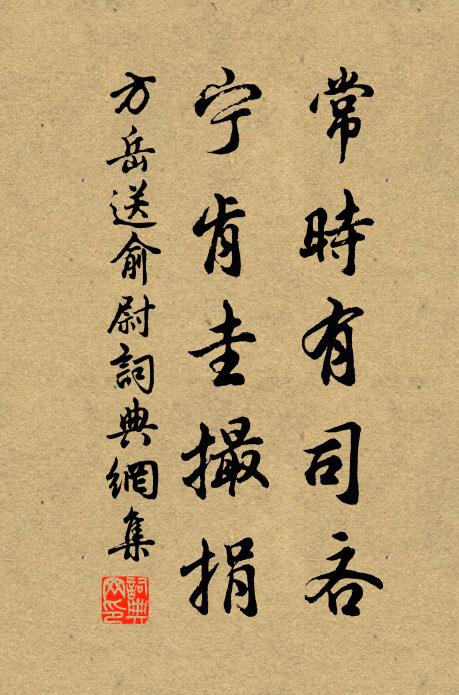 常時有司吝
宁肯圭撮捐
方岳送俞尉詞典網集
詞典網印